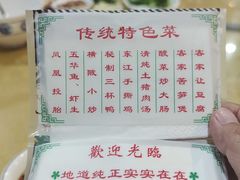 传统特色菜
客家让豆腐
客家苦笋煲
酸菜炒大肠
清炖土猪肉汤
东江手撕鸡
秘制三杯鸭
横陂小炒
五华鱼、虾生
凤凰投胎
歡迎光臨
地道纯正实实在在